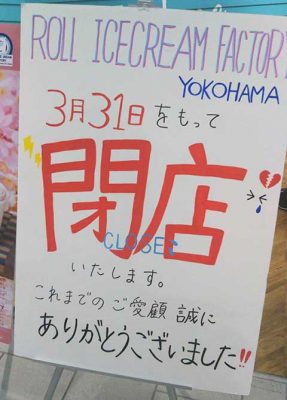 ROLL ICECREAM FACTORY
YOKOHAMA
3月31日をもって
閉店
CLOSE
いたします。
これまでのご愛顧 誠に
ありがとうございました!!